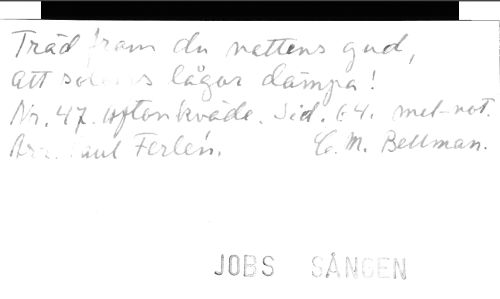 Träd fram du nattens gud,
att solens lågor dämpa!
Nr. 47. Aftonkväde. Sid. 64. mel-not.
Arr. Paul Ferlén. C. M. Bellman.
JOBS SÅNGEN